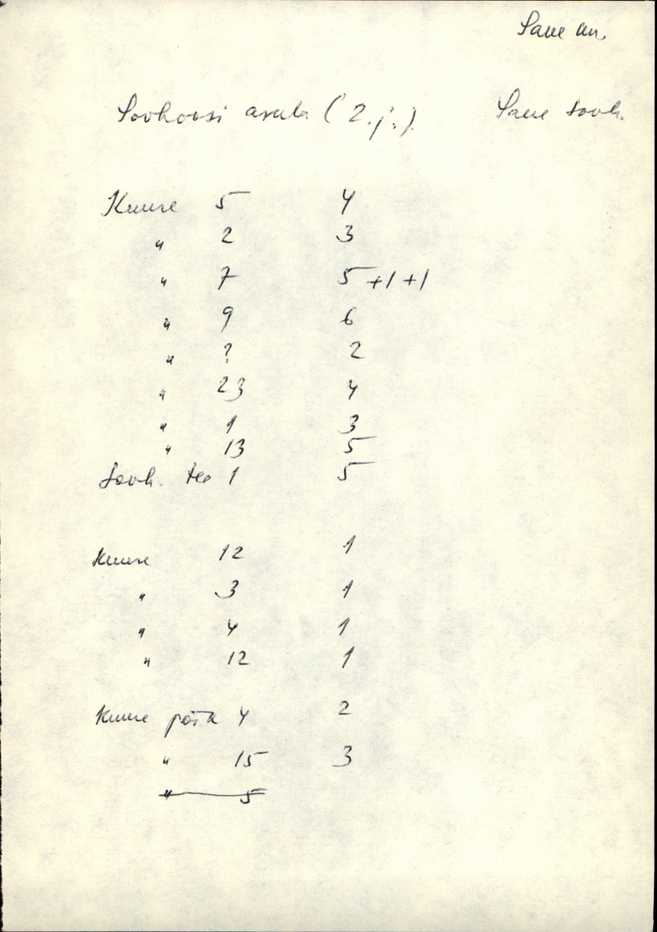 Saue an.
Sovhoosi asula (2.j.). Saue sovh.
Kuuse 5 4
" 2 3
" 7 5+1+1
" 9 6
" ? 2
" 23 4
" 1 3
" 13 5
Sovh. tee 1 5
Kuuse 12 1
" 3 1
" 4 1
" 12 1
Kuuse põik 4 2
" 15 3
" 5